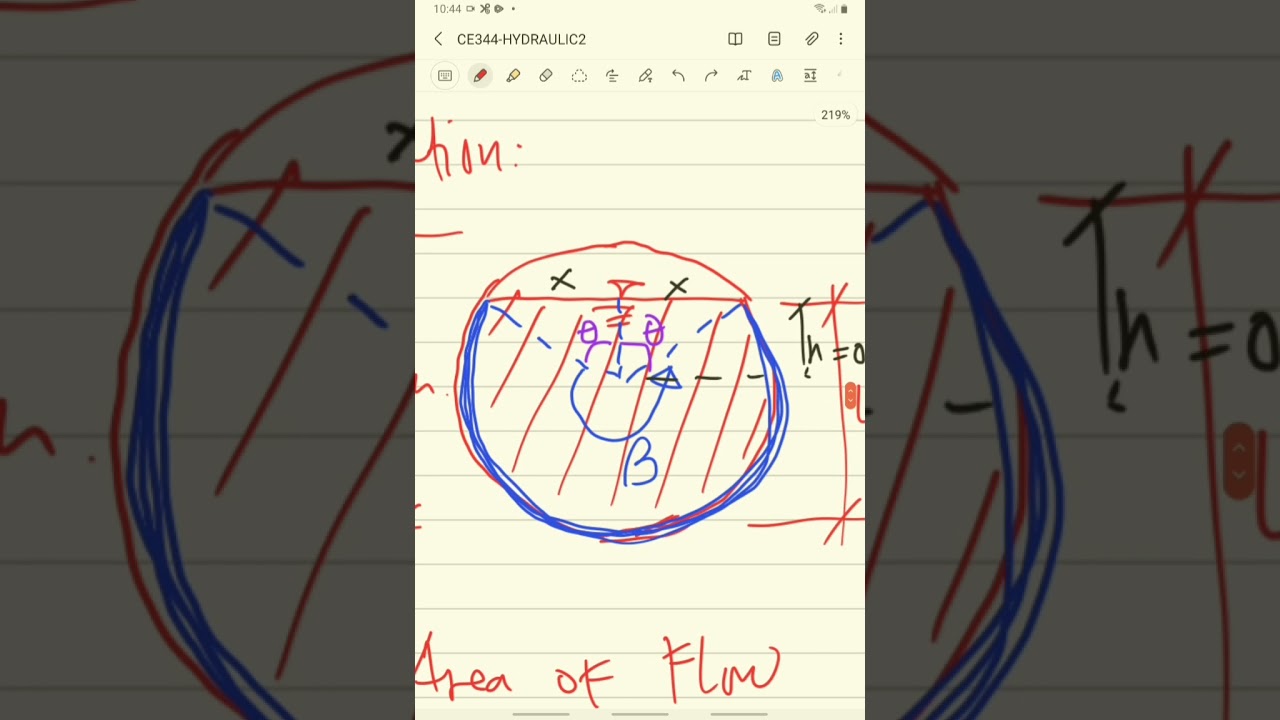 10:44
CE344-HYDRAULIC2
219%
tion:
x x
θ θ
h = 0
β
Area of Flow